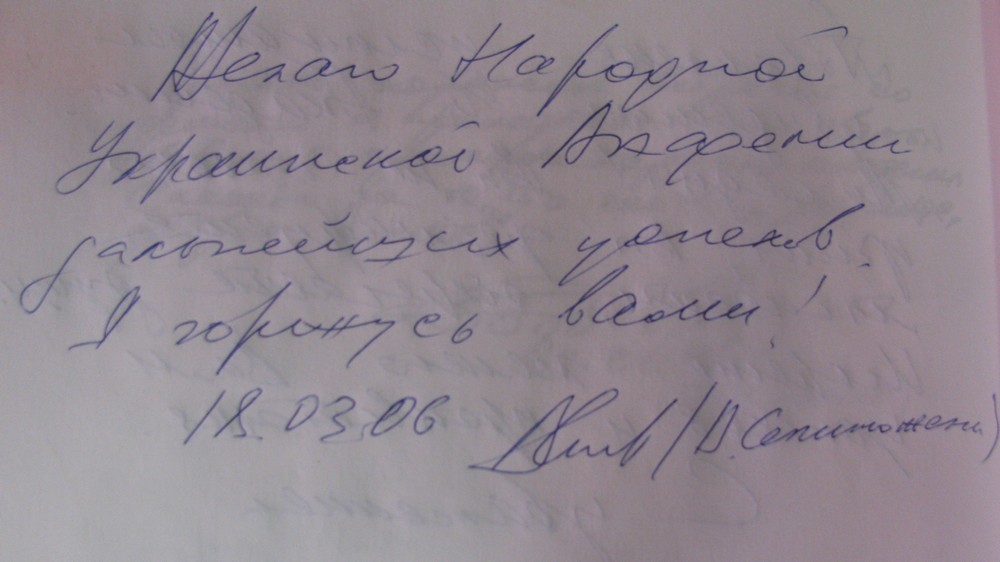 Желаю Народной
Украинской Академии
дальнейших успехов.
Я горжусь вами!
18.03.06